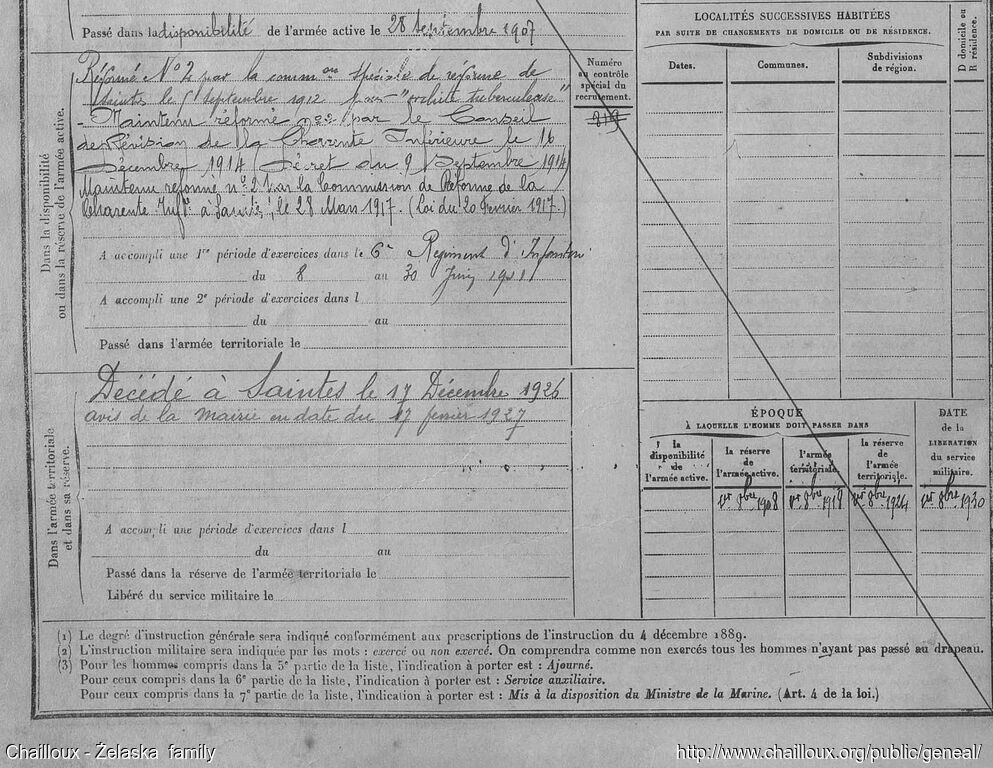 Passé dans la disponibilité de l'armée active le 28 septembre 1907
Réformé N°2 par la comm.on spéciale de réforme de
Saintes le 5 septembre 1912 pour "orchite tuberculeuse"
- Maintenu réformé n°2 par le Conseil
de Révision de la Charente Inférieure le 16
Décembre 1914 (Décret du 9 Septembre 1914)
Maintenu réformé n°2 par la Commission de Réforme de la
Charente Inf.re à Saintes, le 28 Mars 1917. (Loi du 20 Février 1917.)
Dans la disponibilité
ou dans la réserve de l'armée active.
A accompli une 1re période d'exercices dans le 6e Regiment d'Infanterie
du 8 au 30 Juin 1911
A accompli une 2e période d'exercices dans l
du au
Passé dans l'armée territoriale le
Numéro
au contrôle
spécial du
recrutement.
Décédé à Saintes le 17 Décembre 1926
avis de la Mairie en date du 17 fevrier 1927
Dans l'armée territoriale
et dans sa réserve.
A accompli une période d'exercices dans l
du au
Passé dans la réserve de l'armée territoriale le
Libéré du service militaire le
LOCALITÉS SUCCESSIVES HABITÉES
PAR SUITE DE CHANGEMENTS DE DOMICILE OU DE RÉSIDENCE.
Dates.
Communes.
Subdivisions
de région.
D domicile ou
R résidence.
ÉPOQUE
À LAQUELLE L'HOMME DOIT PASSER DANS
la
disponibilité
de
l'armée active.
la réserve
de
l'armée active.
l'armée
territoriale.
la réserve
de
l'armée
territoriale.
DATE
de la
LIBERATION
du service
militaire.
1er 8bre 1908
1er 8bre 1918
1er 8bre 1924
1er 8bre 1930
(1) Le degré d'instruction générale sera indiqué conformément aux prescriptions de l'instruction du 4 décembre 1889.
(2) L'instruction militaire sera indiquée par les mots : exercé ou non exercé. On comprendra comme non exercés tous les hommes n'ayant pas passé au drapeau.
(3) Pour les hommes compris dans la 5e partie de la liste, l'indication à porter est : Ajourné.
Pour ceux compris dans la 6e partie de la liste, l'indication à porter est : Service auxiliaire.
Pour ceux compris dans la 7e partie de la liste, l'indication à porter est : Mis à la disposition du Ministre de la Marine. (Art. 4 de la loi.)
Chailloux - Żelaska family
http://www.chailloux.org/public/geneal/